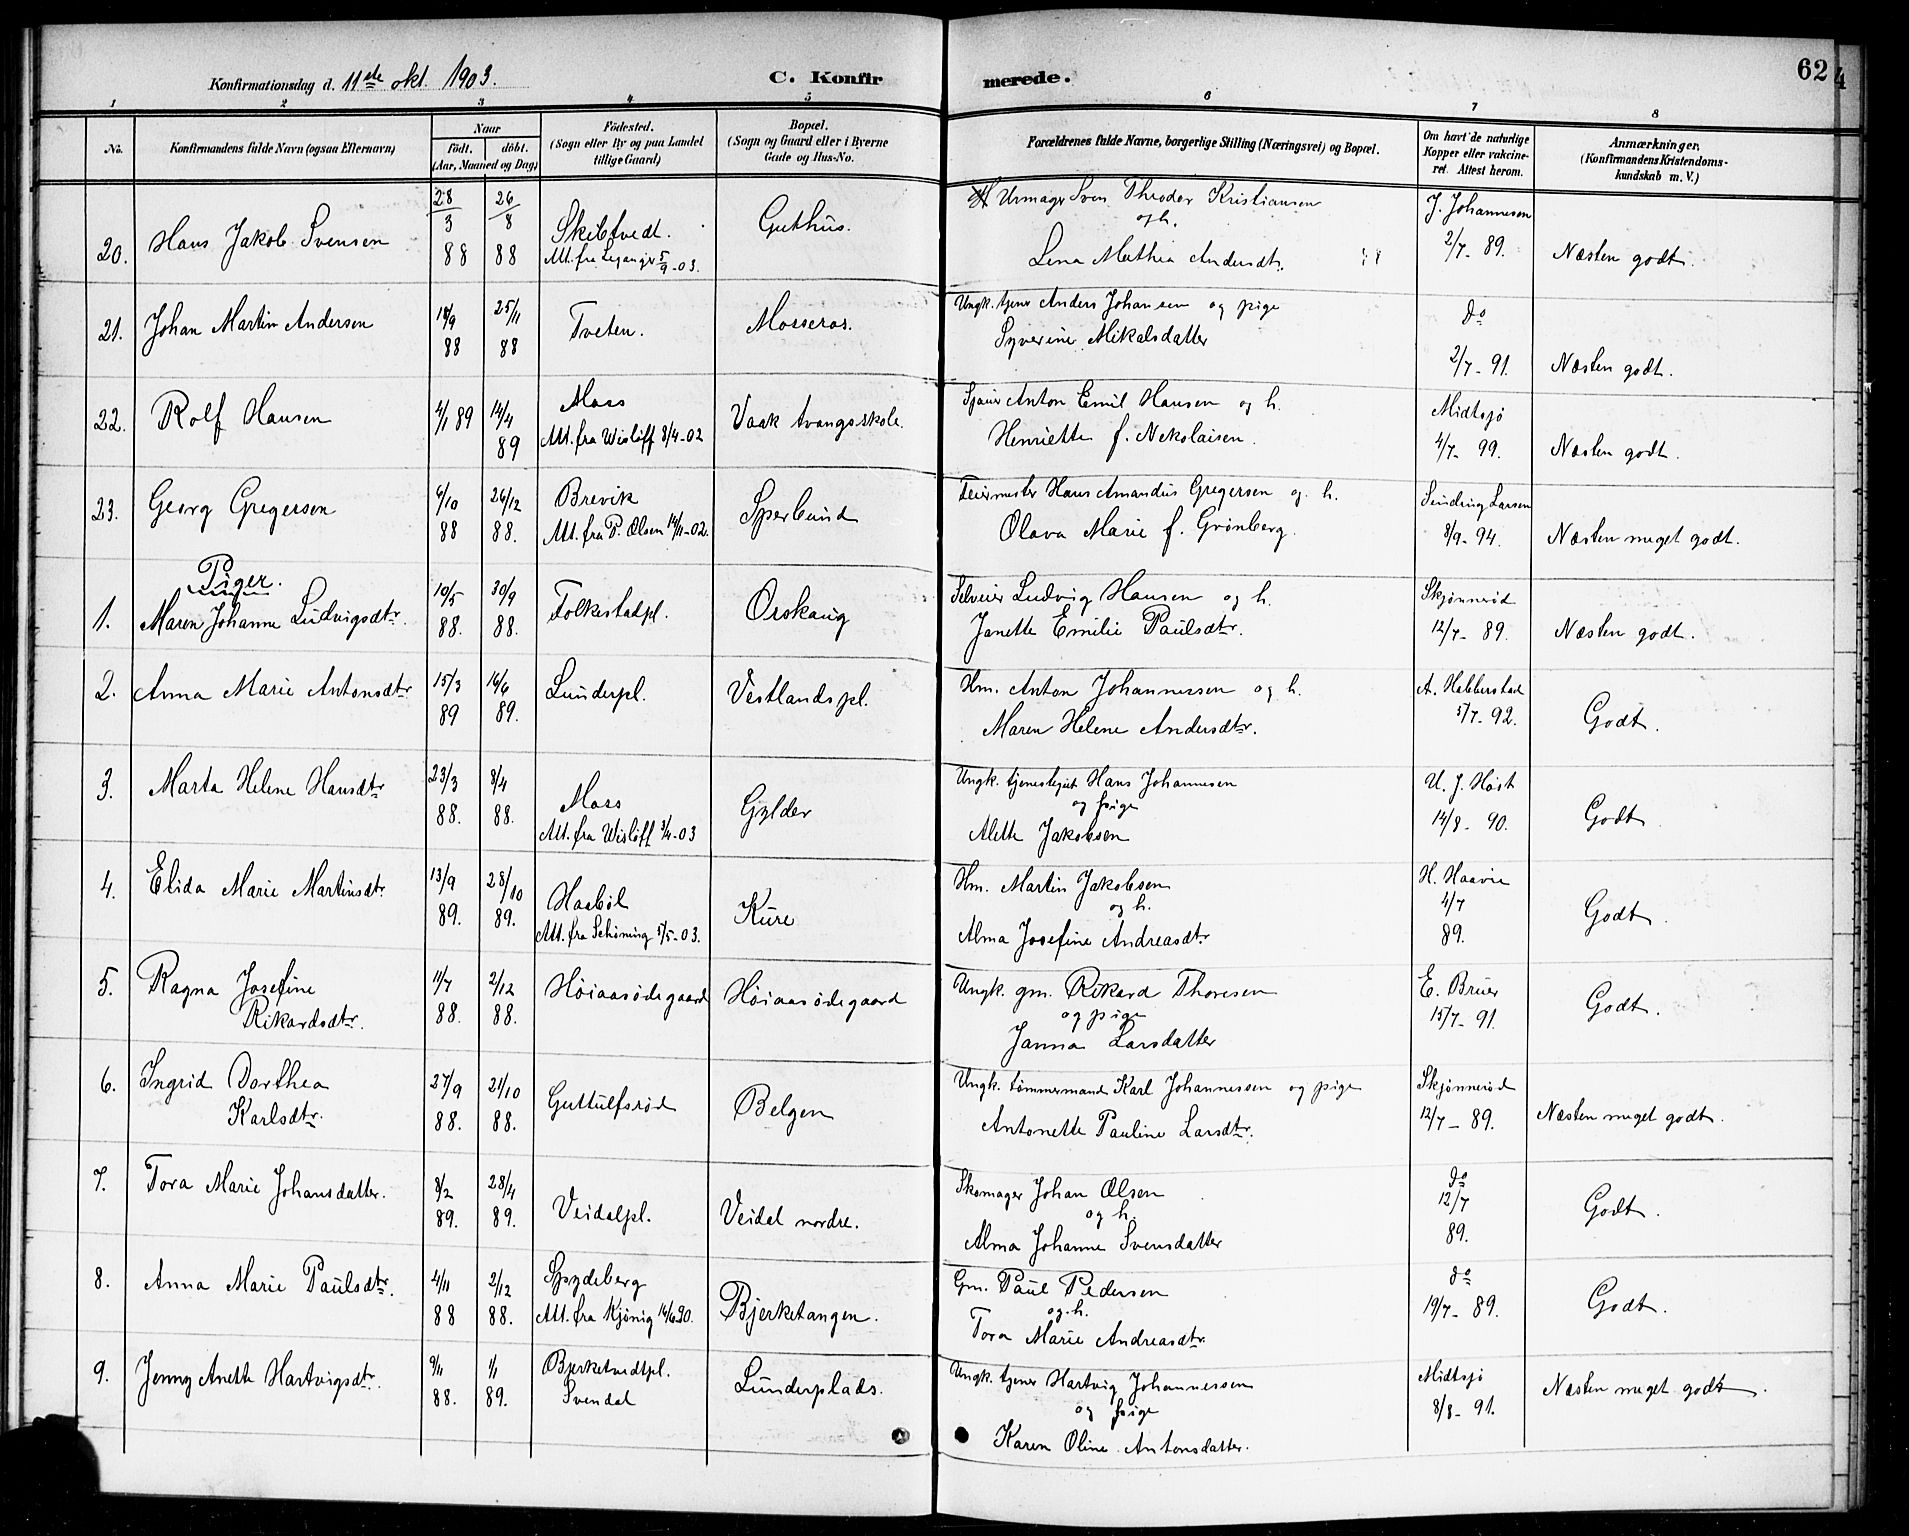 Konfirmationsdag d. 11te okt. 1903.
C. Konfirmerede.
62
1 2 3 4 5 6 7 8
No.
Konfirmandens fulde Navn (ogsaa Efternavn)
Naar
født. døbt.
(Aar, Maaned og Dag)
Fødested.
(Sogn eller By og paa Landet
tillige Gaard)
Bopæl.
(Sogn og Gaard eller i Byerne
Gade og Hus-No.
Forældrenes fulde Navne, borgerlige Stilling (Næringsvei) og Bopæl.
Om havt de naturlige
Kopper eller vakcine-
ret. Attest herom.
Anmærkninger.
(Konfirmandens Kristendoms-
kundskab m. V.)
20. Hans Jakob Svensen
28/3 88
26/8 88
Skibtvedt.
Att. fra 5/9-03.
Guthus.
Urmager Sven Theodor Kristiansen
og h.
Lena Mathea Andersdtr.
J. Johannesen
2/7- 89.
Næsten godt.
21. Johan Martin Andersen
18/9 88
25/11 88
Tveten.
Mosseros.
Ungk. tjener Anders Johansen og pige
Syverine Mikalsdatter
do
2/7- 91.
Næsten godt.
22. Rolf Hansen
4/1 89
14/4 89
Moss
Att. fra Wisløff 8/4-02
Vaak tvangsskole.
Sjauer Anton Emil Hansen og h.
Henriette f. Nekolaisen.
Midtsjø
4/7- 99.
Næsten godt.
23. Georg Gregersen
6/10 88
26/12 88.
Brevik
Att. fra P. Olsen 14/11-02.
Sperlund
Feiermester Hans Amandus Gregersen og h.
Olava Marie f. Grønberg.
Sundring Larsen
8/9- 94.
Næsten meget godt.
Piger.
1. Maren Johanne Ludvigsdtr.
10/5 88.
30/9 88.
Folkestadpl.
Orskaug
Selveier Ludvig Hansen og h.
Janette Emilie Paulsdtr.
Skjønnerød
12/7- 89.
Næsten godt.
2. Anna Marie Antonsdtr
15/3 89
16/6 89.
Lunderpl.
Vestlandspl.
Hm. Anton Johannessen og h.
Maren Helene Andersdtr.
A. Hebberstad
5/7- 92.
Godt.
3. Marta Helene Hansdtr
23/3 88.
8/4 88.
Moss
Att. fra Wisløff 3/4-03
Gylder
Ungk. tjenestegut Hans Johannesen
og pige
Alette Jakobsen
U. J. Høst
14/8- 90.
Godt
4. Elida Marie Martinsdtr.
13/9 89.
28/10 89.
Haabøl
Att. fra Schøning 5/5-03.
Kure
Hm. Martin Jakobsen
og h.
Alma Josefine Andreasdtr
H. Haavie
4/7
89.
Godt.
5. Ragna Josefine
Rikardsdtr.
11/7 88.
2/12 88.
Høiaasødegaard
Høiaasødegaard
Ungk. gm. Rikard Thoresen
og pige
Janna Larsdatter
E. Bruer
15/7- 91.
Godt.
6. Ingrid Dorthea
Karlsdtr.
27/9 88.
21/10 88.
Guttulfsrød
Belgen
Ungk. tømmermand Karl Johannessen og pige
Antonette Pauline Larsdtr.
Skjønnerød
12/7- 89.
Næsten meget godt.
7. Tora Marie Johansdatter.
8/2 89.
28/4 89.
Veidalpl.
Veidal nordre.
Skomager Johan Olsen
og h.
Alma Johanne Svensdatter
do
12/7
89.
Godt.
8. Anna Marie Paulsdtr.
4/11 88
2/12 88.
Spydeberg
Att. fra Kjønig 14/6-90.
Bjerketangen.
Gm. Paul Pedersen
og h.
Tora Marie Andreasdtr
do
19/7- 89.
Godt.
9. Jenny Anette Hartvigsdtr.
9/11 88.
1/1 89.
Bjerketvedtpl.
Svendal
Lunderplads.
Ungk. tjener Hartvig Johannessen
og pige
Karen Oline Antonsdatter.
Midtsjø
8/8- 91.
Næsten meget godt.